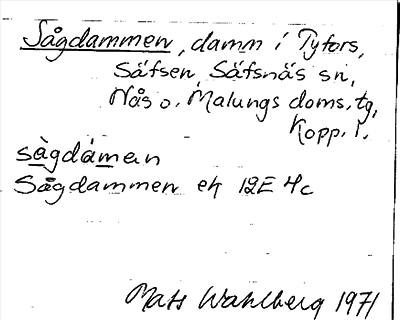 Sågdammen, damm i Tyfors,
Säfsen, Säfsnäs sn,
Nås o. Malungs doms. tg,
Kopp. l.
sàgdámєn
Sågdammen ek 12E 4c
Mats Wahlberg 1971